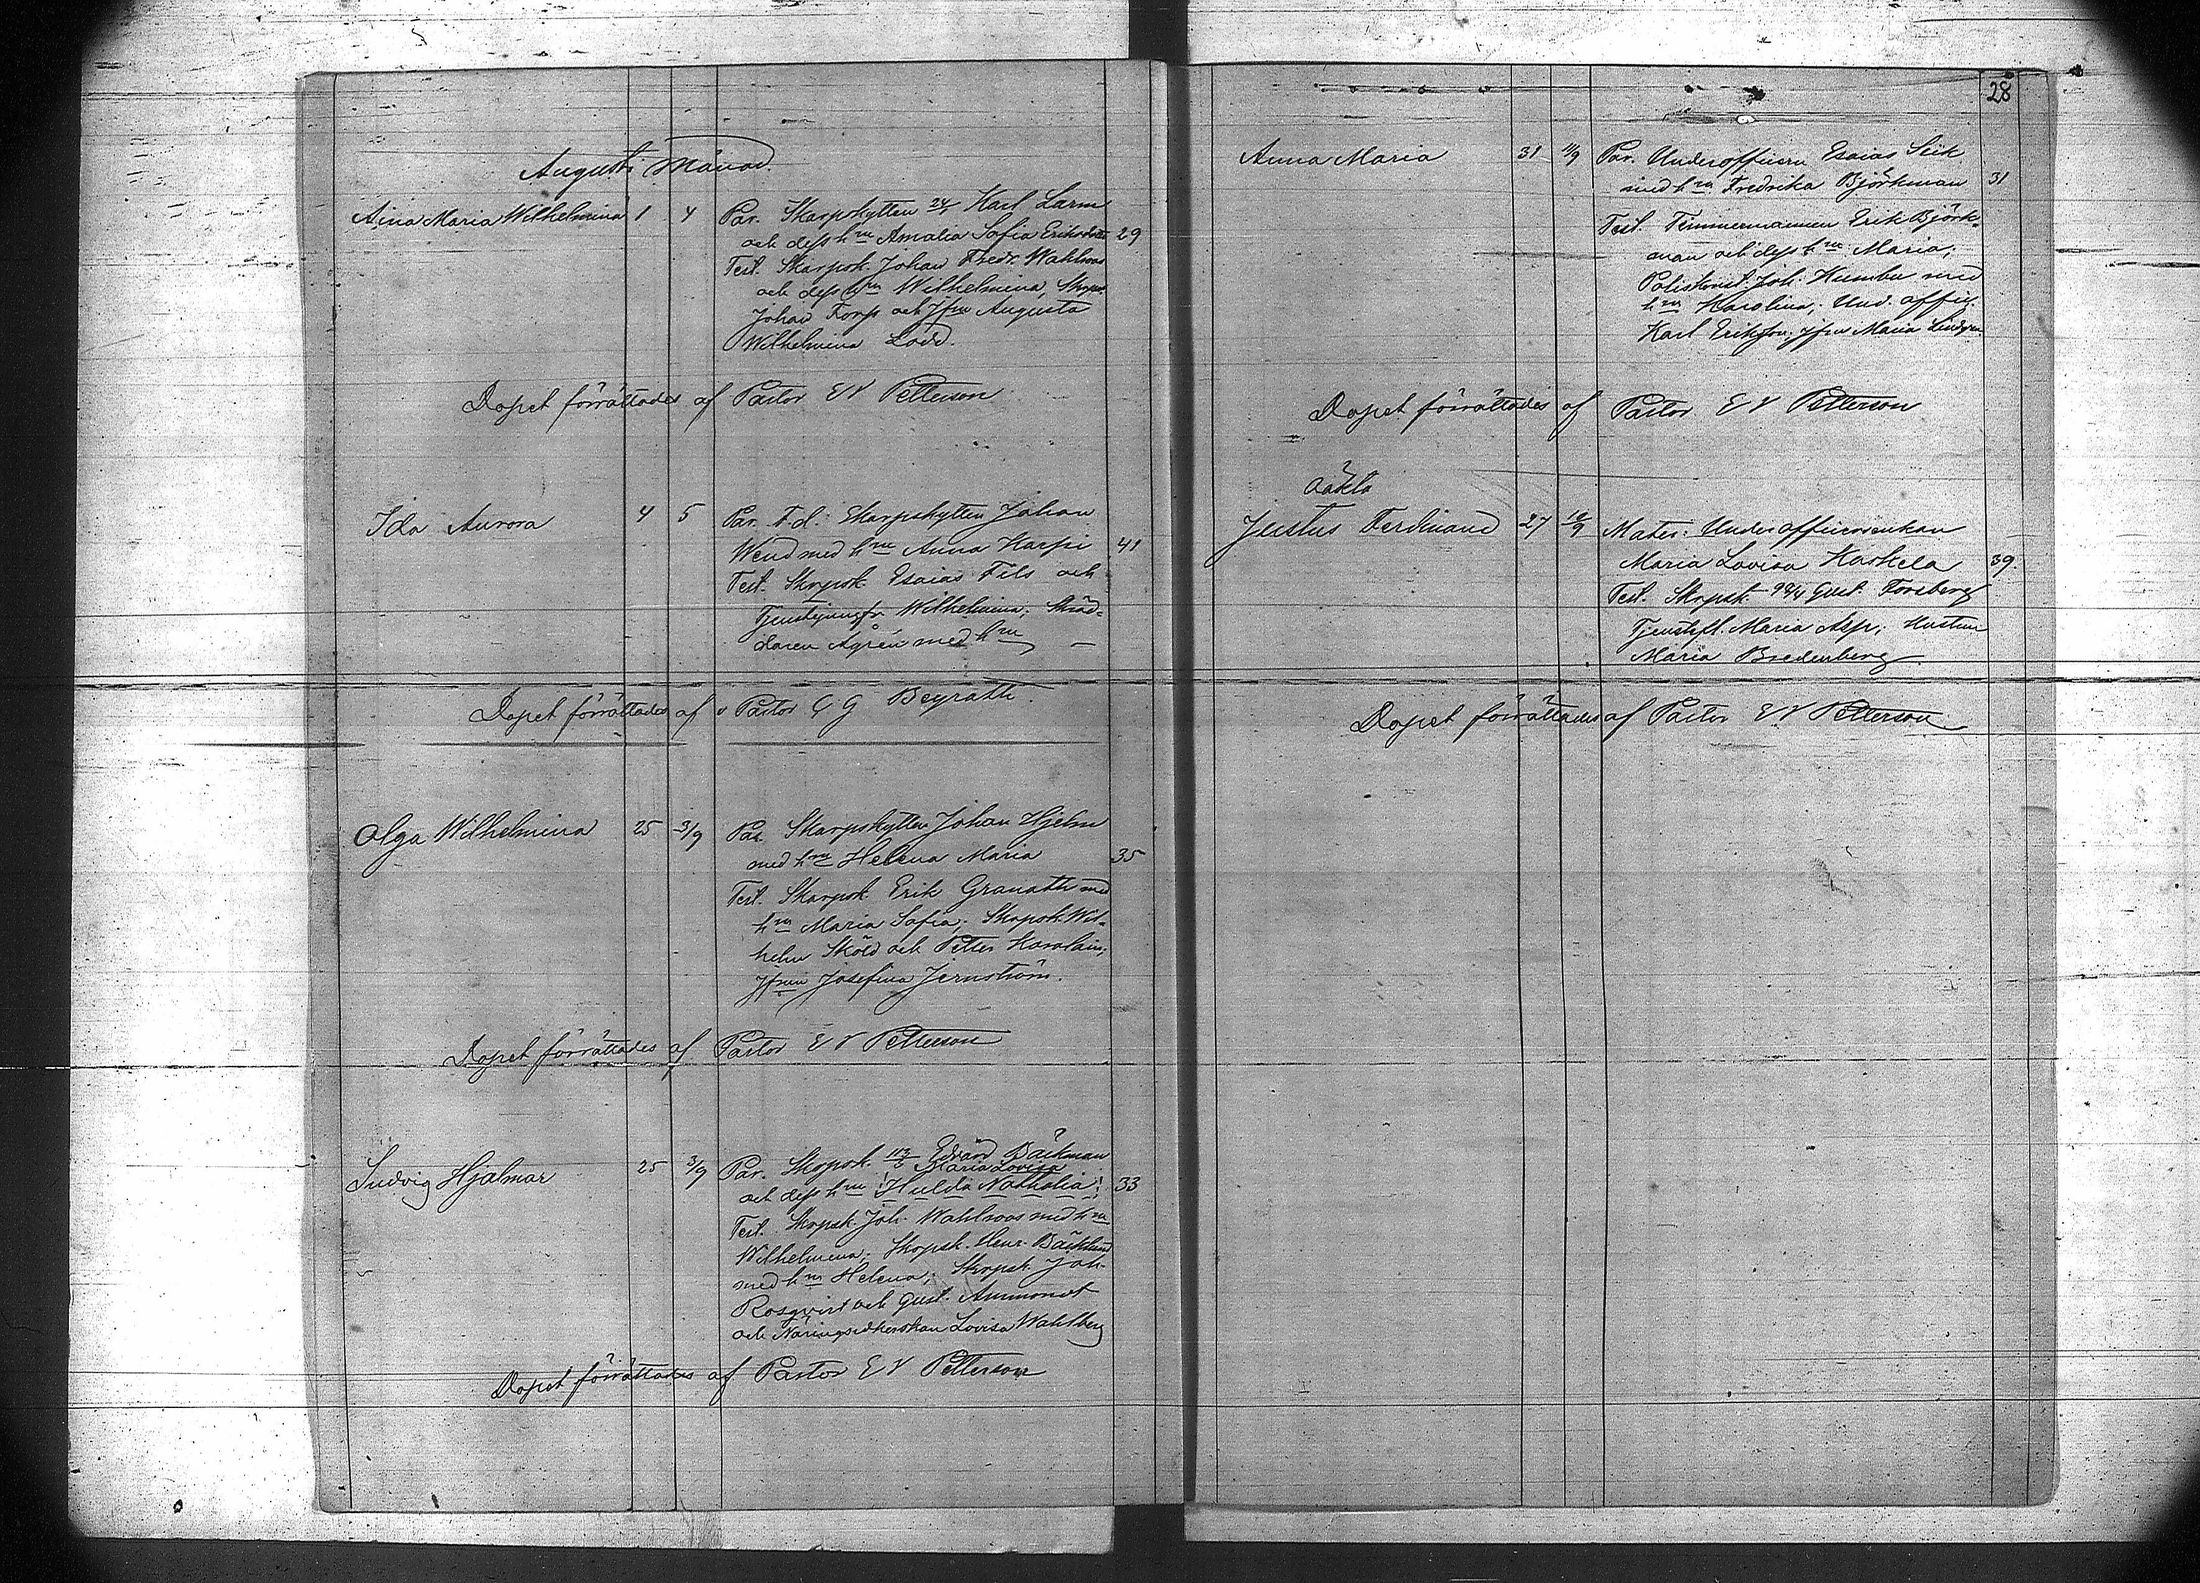 Augusti Månad.
Aina Maria Wilhelmina 1 4 Par. Skarpskytten 24 Karl Larm
och dess hru Amalia Sofia Eriksdotter 29
Test. Skarpsk. Johan Fredr. Wahlroos
och dess hru Wilhelmina, Skarpsk.
Johan Forss och Jfru Augusta
Wilhelmina Lodd.
Dopet förrättades af Pastor E V Petterson
Ida Aurora 4 5 Par. F.d. Skarpskytten Johan
Wend med hru Anna Karpi 41
Test. Skrpsk. Esaias Fils och
Tjenstejungfr. Wilhelmina; Skräd-
daren Ågrén med hru —
Dopet förrättades af v Pastor G G Beyrath.
Olga Wilhelmina 25 3/9 Par. Skarpskytten Johan Hjelm
med hru Helena Maria 35
Test. Skarpsk. Erik Granath med
hru Maria Sofia; Skrpsk. Wil-
helm Sköld och Petter Karolain;
Jfrun Josefina Jernström.
Dopet förrättades af Pastor E V Petterson
Ludvig Hjalmar 25 3/9 Par. Skrpsk. 113 Edvard Bäckman
Maria Lovisa
och dess hru Hulda Nathalia; 33
Test. Skrpsk. Joh. Wahlroos med hru
Wilhelmina; Skrpsk. Henr. Bäcklund
med hru Helena; Skrpsk. Joh.
Rosqvist och Gust. Ammondt
och Näringsidkerskan Lovisa Wahlberg
Dopet förrättades af Pastor E V Petterson
28
Anna Maria 31 11/9 Par. Underofficern Esaias Siik
med hru Fredrika Björkman 31
Test. Timmermannen Erik Björk-
man och dess hru Maria;
Poliskonst. Joh. Humbu med
hru Karolina; Und. offic.
Karl Eriksson; Jfru Maria Lindgren
Dopet förrättades af Pastor E V Petterson
Oäkta
Justus Ferdinand 27 10/9 Mater: Underofficersenkan
Maria Lovisa Kaskela 39.
Test. Skrpsk. 99/4 Gust. Forsberg
Tjenstefl. Maria Asp; Hustrun
Maria Bredenberg.
Dopet förrättades af Pastor E V Petterson